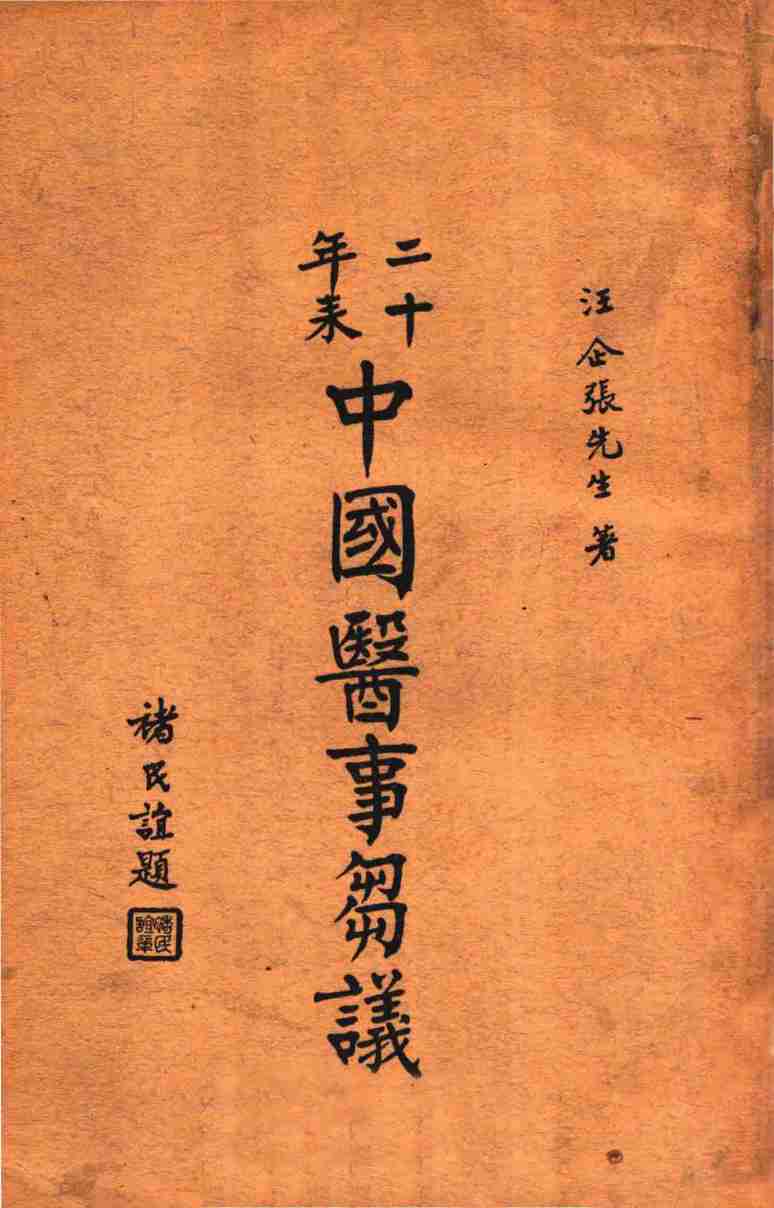 汪企張先生著
二十
年来
中國醫事芻議
褚民誼題
褚民
誼章